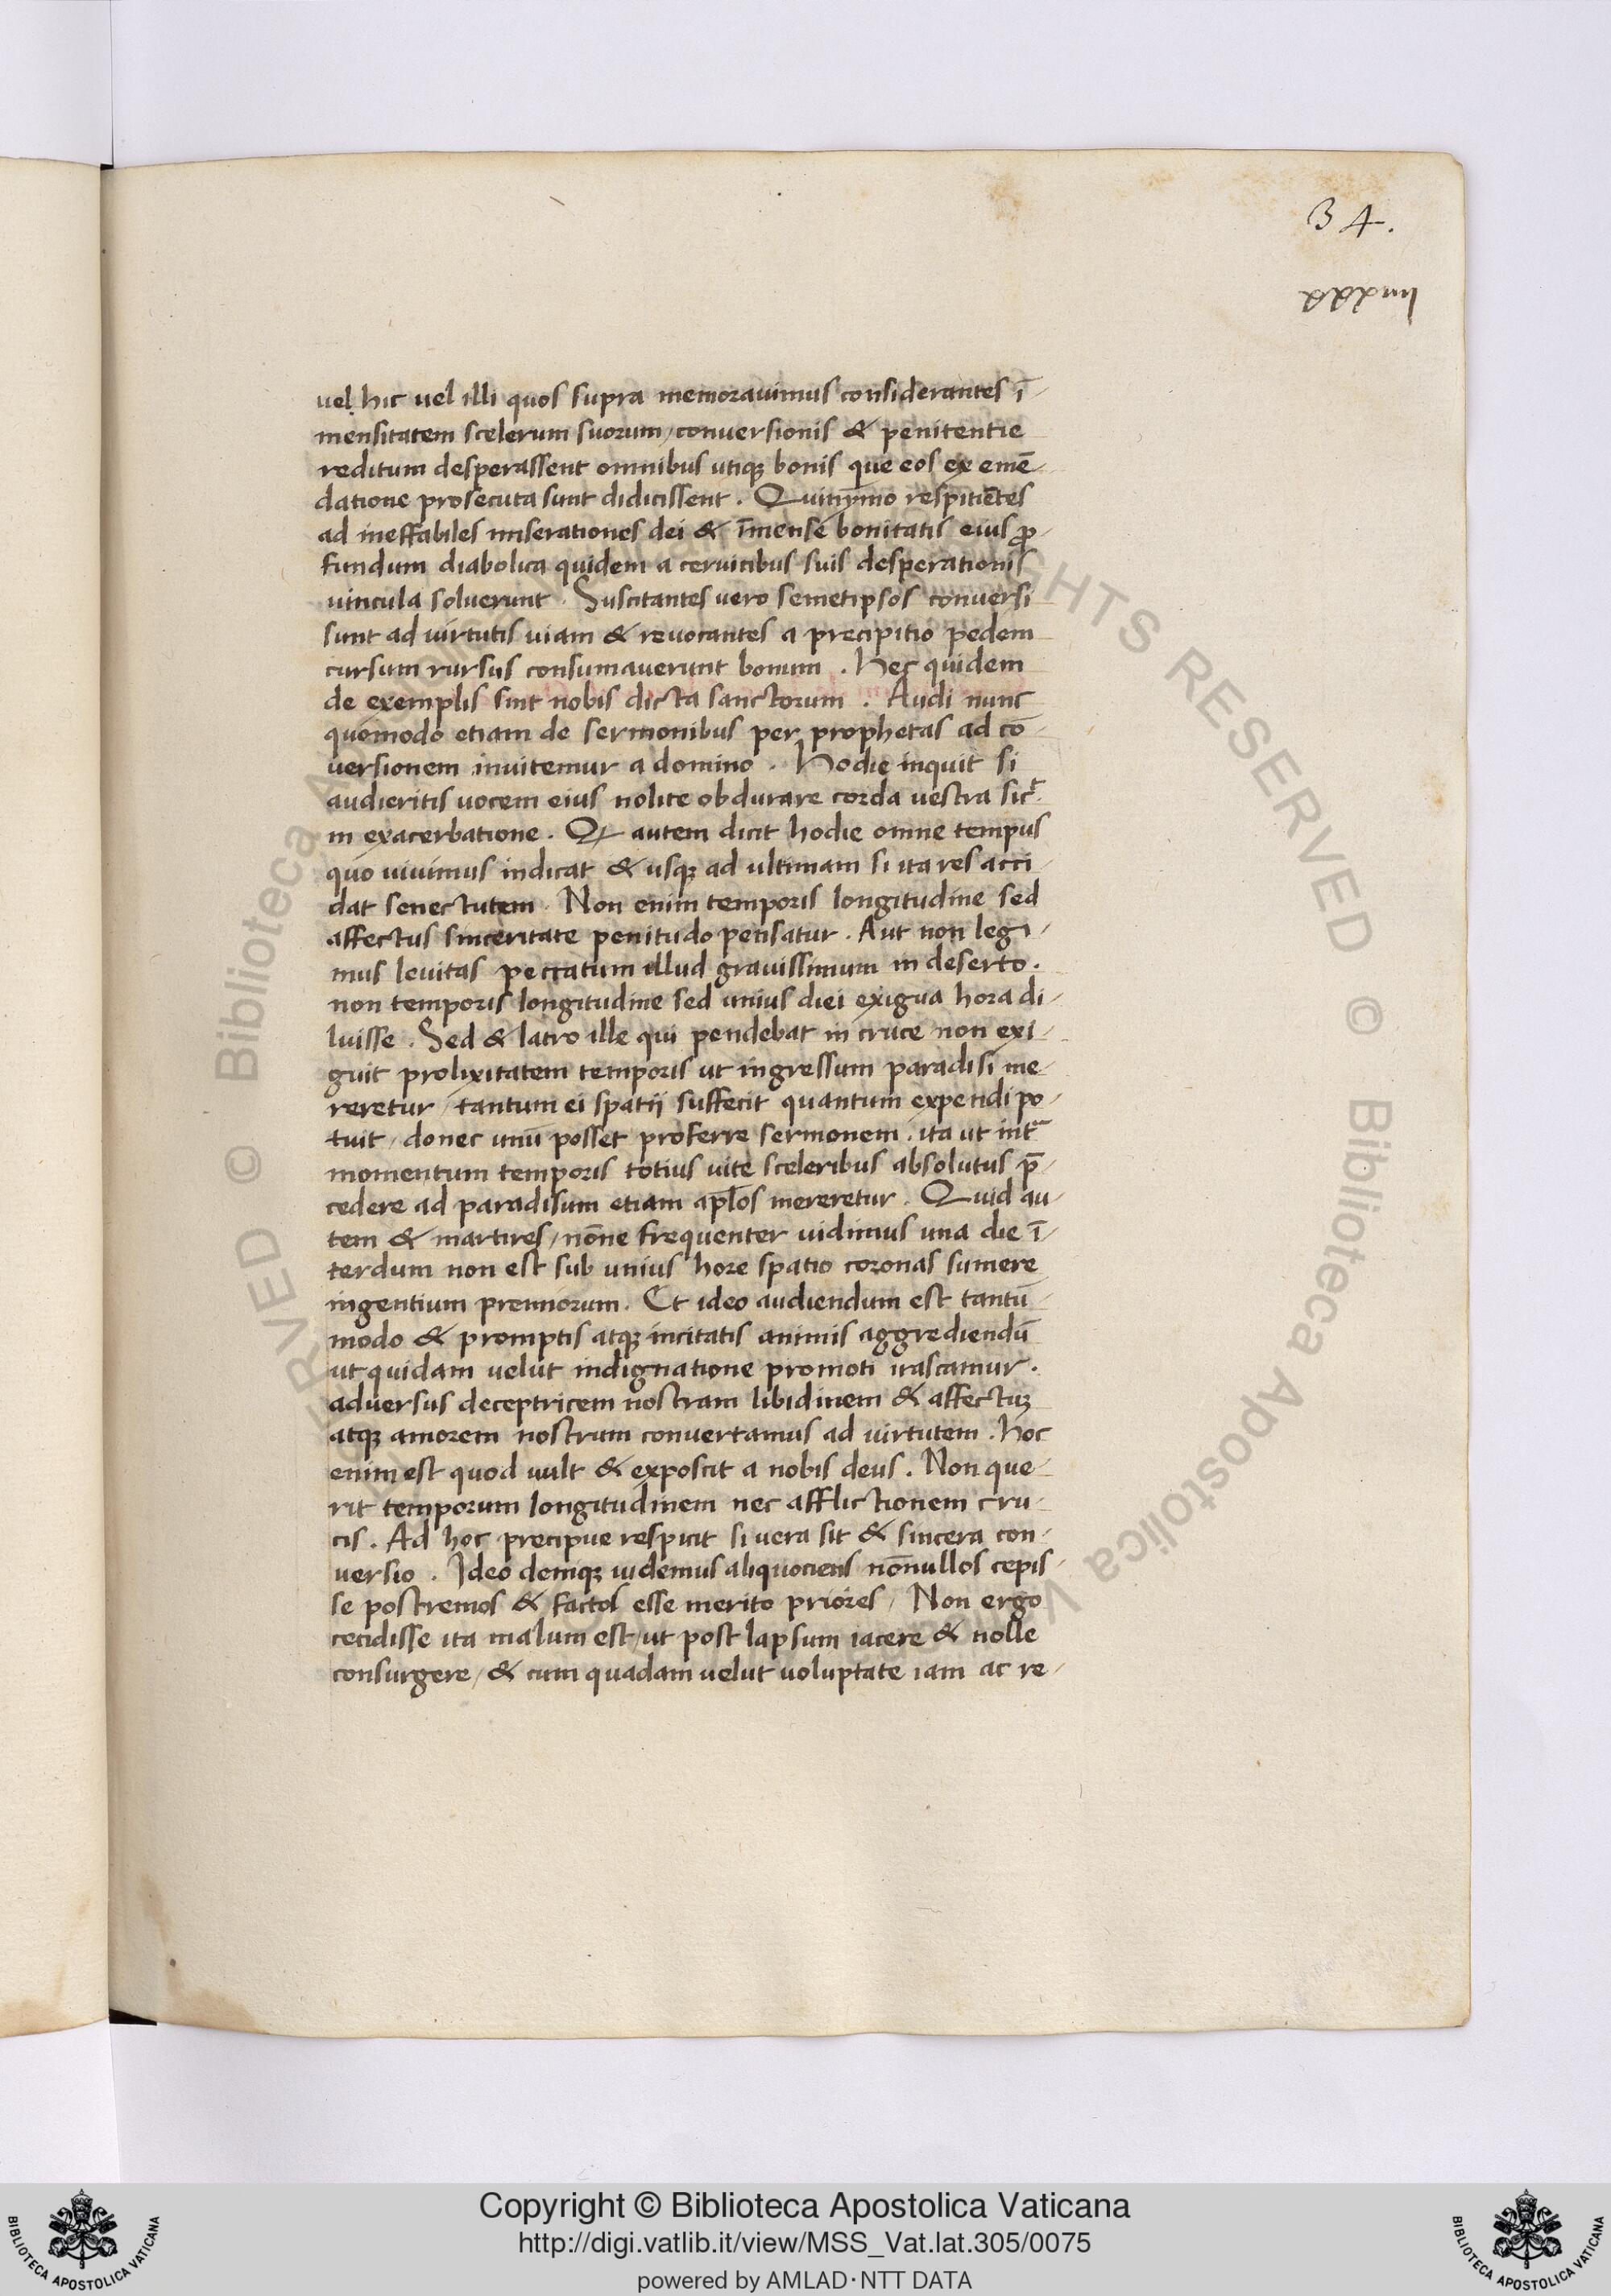 34.
uel hic uel illi quos supra memorauimus considerantes ī-
mensitatem scelerum suorum, conuersionis & penitentie
reditum desperassent omnibus utiqȝ bonis que eos ex emē-
datione prosecuta sunt didicissent. Quinymo respitiētes
ad ineffabiles miserationes dei & īmense bonitatis eius ꝓ-
fundum diabolica quidem a ceruicibus suis desperationis
uincula soluerunt. Suscitantes uero semetipsos conuersi
sunt ad uirtutis uiam & reuocantes a precipitio pedem
cursum rursus consumauerunt bonum. Hec quidem
de exemplis sint nobis dicta sanctorum. Audi nunc
quomodo etiam de sermonibus per prophetas ad cō-
uersionem inuitemur a domino. Hodie inquit si
audieritis uocem eius nolite obdurare corda uestra sic̄
in exacerbatione. Q autem dicit hodie omne tempus
quo uiuimus indicat & usqȝ ad ultimam si ita res acci-
dat senectutem. Non enim temporis longitudine sed
affectus sinceritate penitudo pensatur. Aut non legi-
mus leuitas peccatum illud grauissimum in deserto.
non temporis longitudine sed unius diei exigua hora di-
luisse. Sed & latro ille qui pendebat in cruce non exi-
guit prolixitatem temporis ut ingressum paradisi me-
reretur, tantum ei spatij suffecit quantum expendi po-
tuit, donec unū posset proferre sermonem. ita ut int̄
momentum temporis totius uite sceleribus absolutus p̄-
cedere ad paradisum etiam apl̄os mereretur. Quid au-
tem & martires, nōne frequenter uidimus una die ī-
terdum non est sub unius hore spatio coronas sumere
ingentium premiorum. Et ideo audiendum est tantū-
modo & promptis atqȝ incitatis animis aggrediendū
ut quidam uelut indignatione promoti irascamur.
aduersus deceptricem nostram libidinem & affectuȝ
atqȝ amorem nostrum conuertamus ad uirtutem. hoc
enim est quod uult & exposcit a nobis deus. Non que-
rit temporum longitudinem nec afflictionem cru-
cis. Ad hoc precipue respicit si uera sit & sincera con-
uersio. Ideo deniqȝ uidemus aliquociens nōnullos cepis-
se postremos & factos esse merito priores, Non ergo
cecidisse ita malum est, ut post lapsum iacere & nolle
consurgere, & cum quadam uelut uoluptate iam ac re-
© Biblioteca Apostolica Vaticana
RIGHTS RESERVED
Copyright © Biblioteca Apostolica Vaticana
http://digi.vatlib.it/view/MSS_Vat.lat.305/0075
powered by AMLAD·NTT DATA
BIBLIOTECA APOSTOLICA VATICANA
BIBLIOTECA APOSTOLICA VATICANA